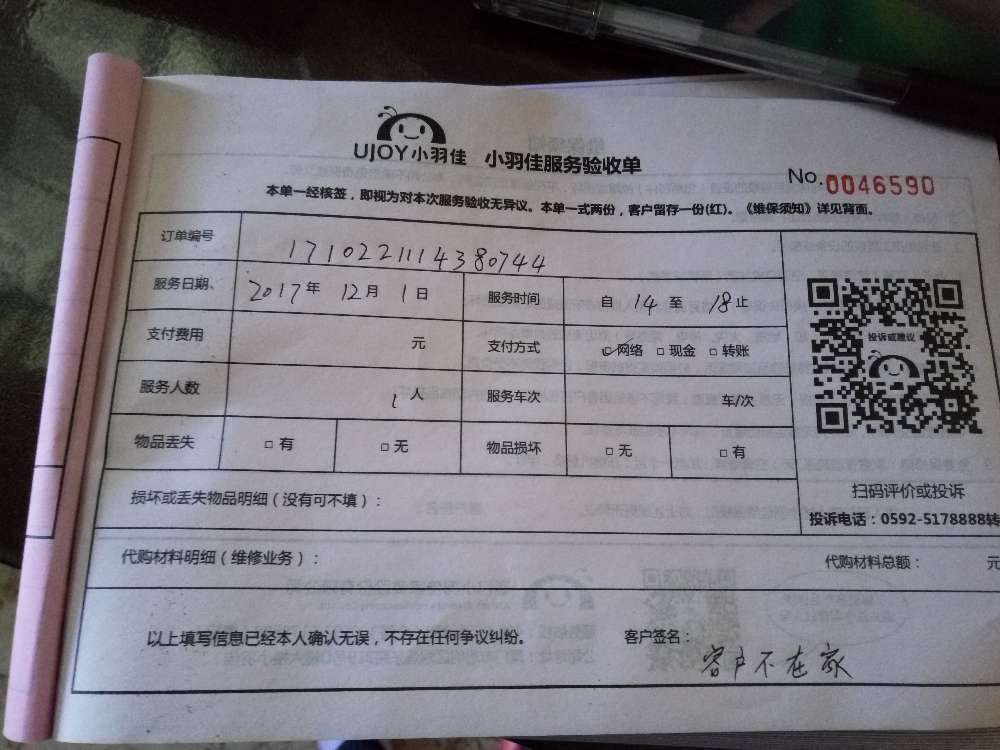 UJOY小羽佳 小羽佳服务验收单
No.0046590
本单一经核签，即视为对本次服务验收无异议。本单一式两份，客户留存一份(红)。《维保须知》详见背面。
订单编号 171022111438​0744
服务日期、 2017年 12月 1日 服务时间 自 14 至 18止
支付费用 元 支付方式 ☑网络 □现金 □转账
服务人数 1人 服务车次 车/次
物品丢失 □有 □无 物品损坏 □无 □有
投诉或建议
扫码评价或投诉
投诉电话：0592-5178888转
损坏或丢失物品明细（没有可不填）：
代购材料明细（维修业务）： 代购材料总额： 元
以上填写信息已经本人确认无误，不存在任何争议纠纷。 客户签名：
客户不在家